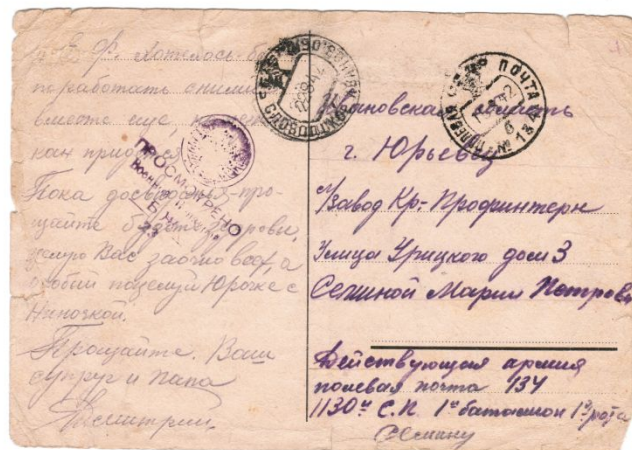 Ф. Хотелось бы
поработать с ними
вместе еще,
как
Пока досвидания - про-
щайте будьте здоровы,
целую Вас заочно всех, а
особый поцелуй Юрочке с
Ниночкой.
Прощайте. Ваш
супруг и папа
Дмитрий.
ПРОСМОТРЕНО
Военной
23
СЛОБОДСКОЙ
ПОЛЕВАЯ ПОЧТА
№ 134
Ивановская область
г. Юрьевец
с/завод Кр-Профинтерн
Улица Урицкого дом 3
Семиной Марии Петровн
Действующая армия
полевая почта 134
1130й С.П. 1й батальон 1я рота
Семину